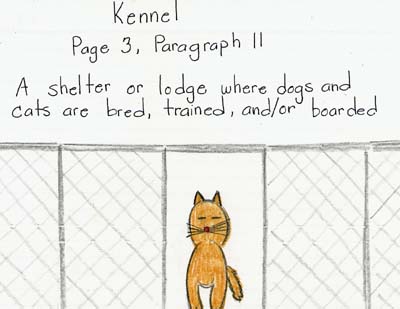 Kennel
Page 3, Paragraph 11
A shelter or lodge where dogs and
cats are bred, trained, and/or boarded